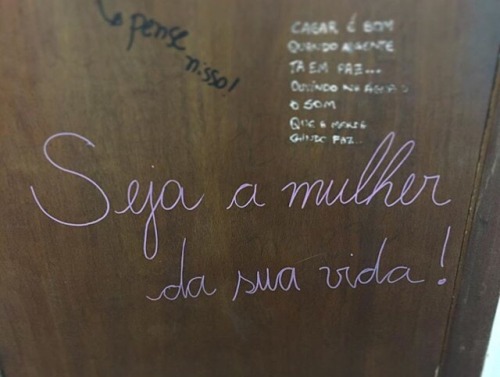 pense
nisso!
CAGAR É BOM
QUANDO A GENTE
TA EM PAZ...
OUVINDO NA ÁGUA
O SOM
QUE A
FAZ..
Seja a mulher
da sua vida!